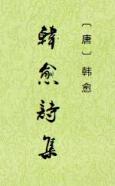 〔唐〕韩愈
韓愈詩集